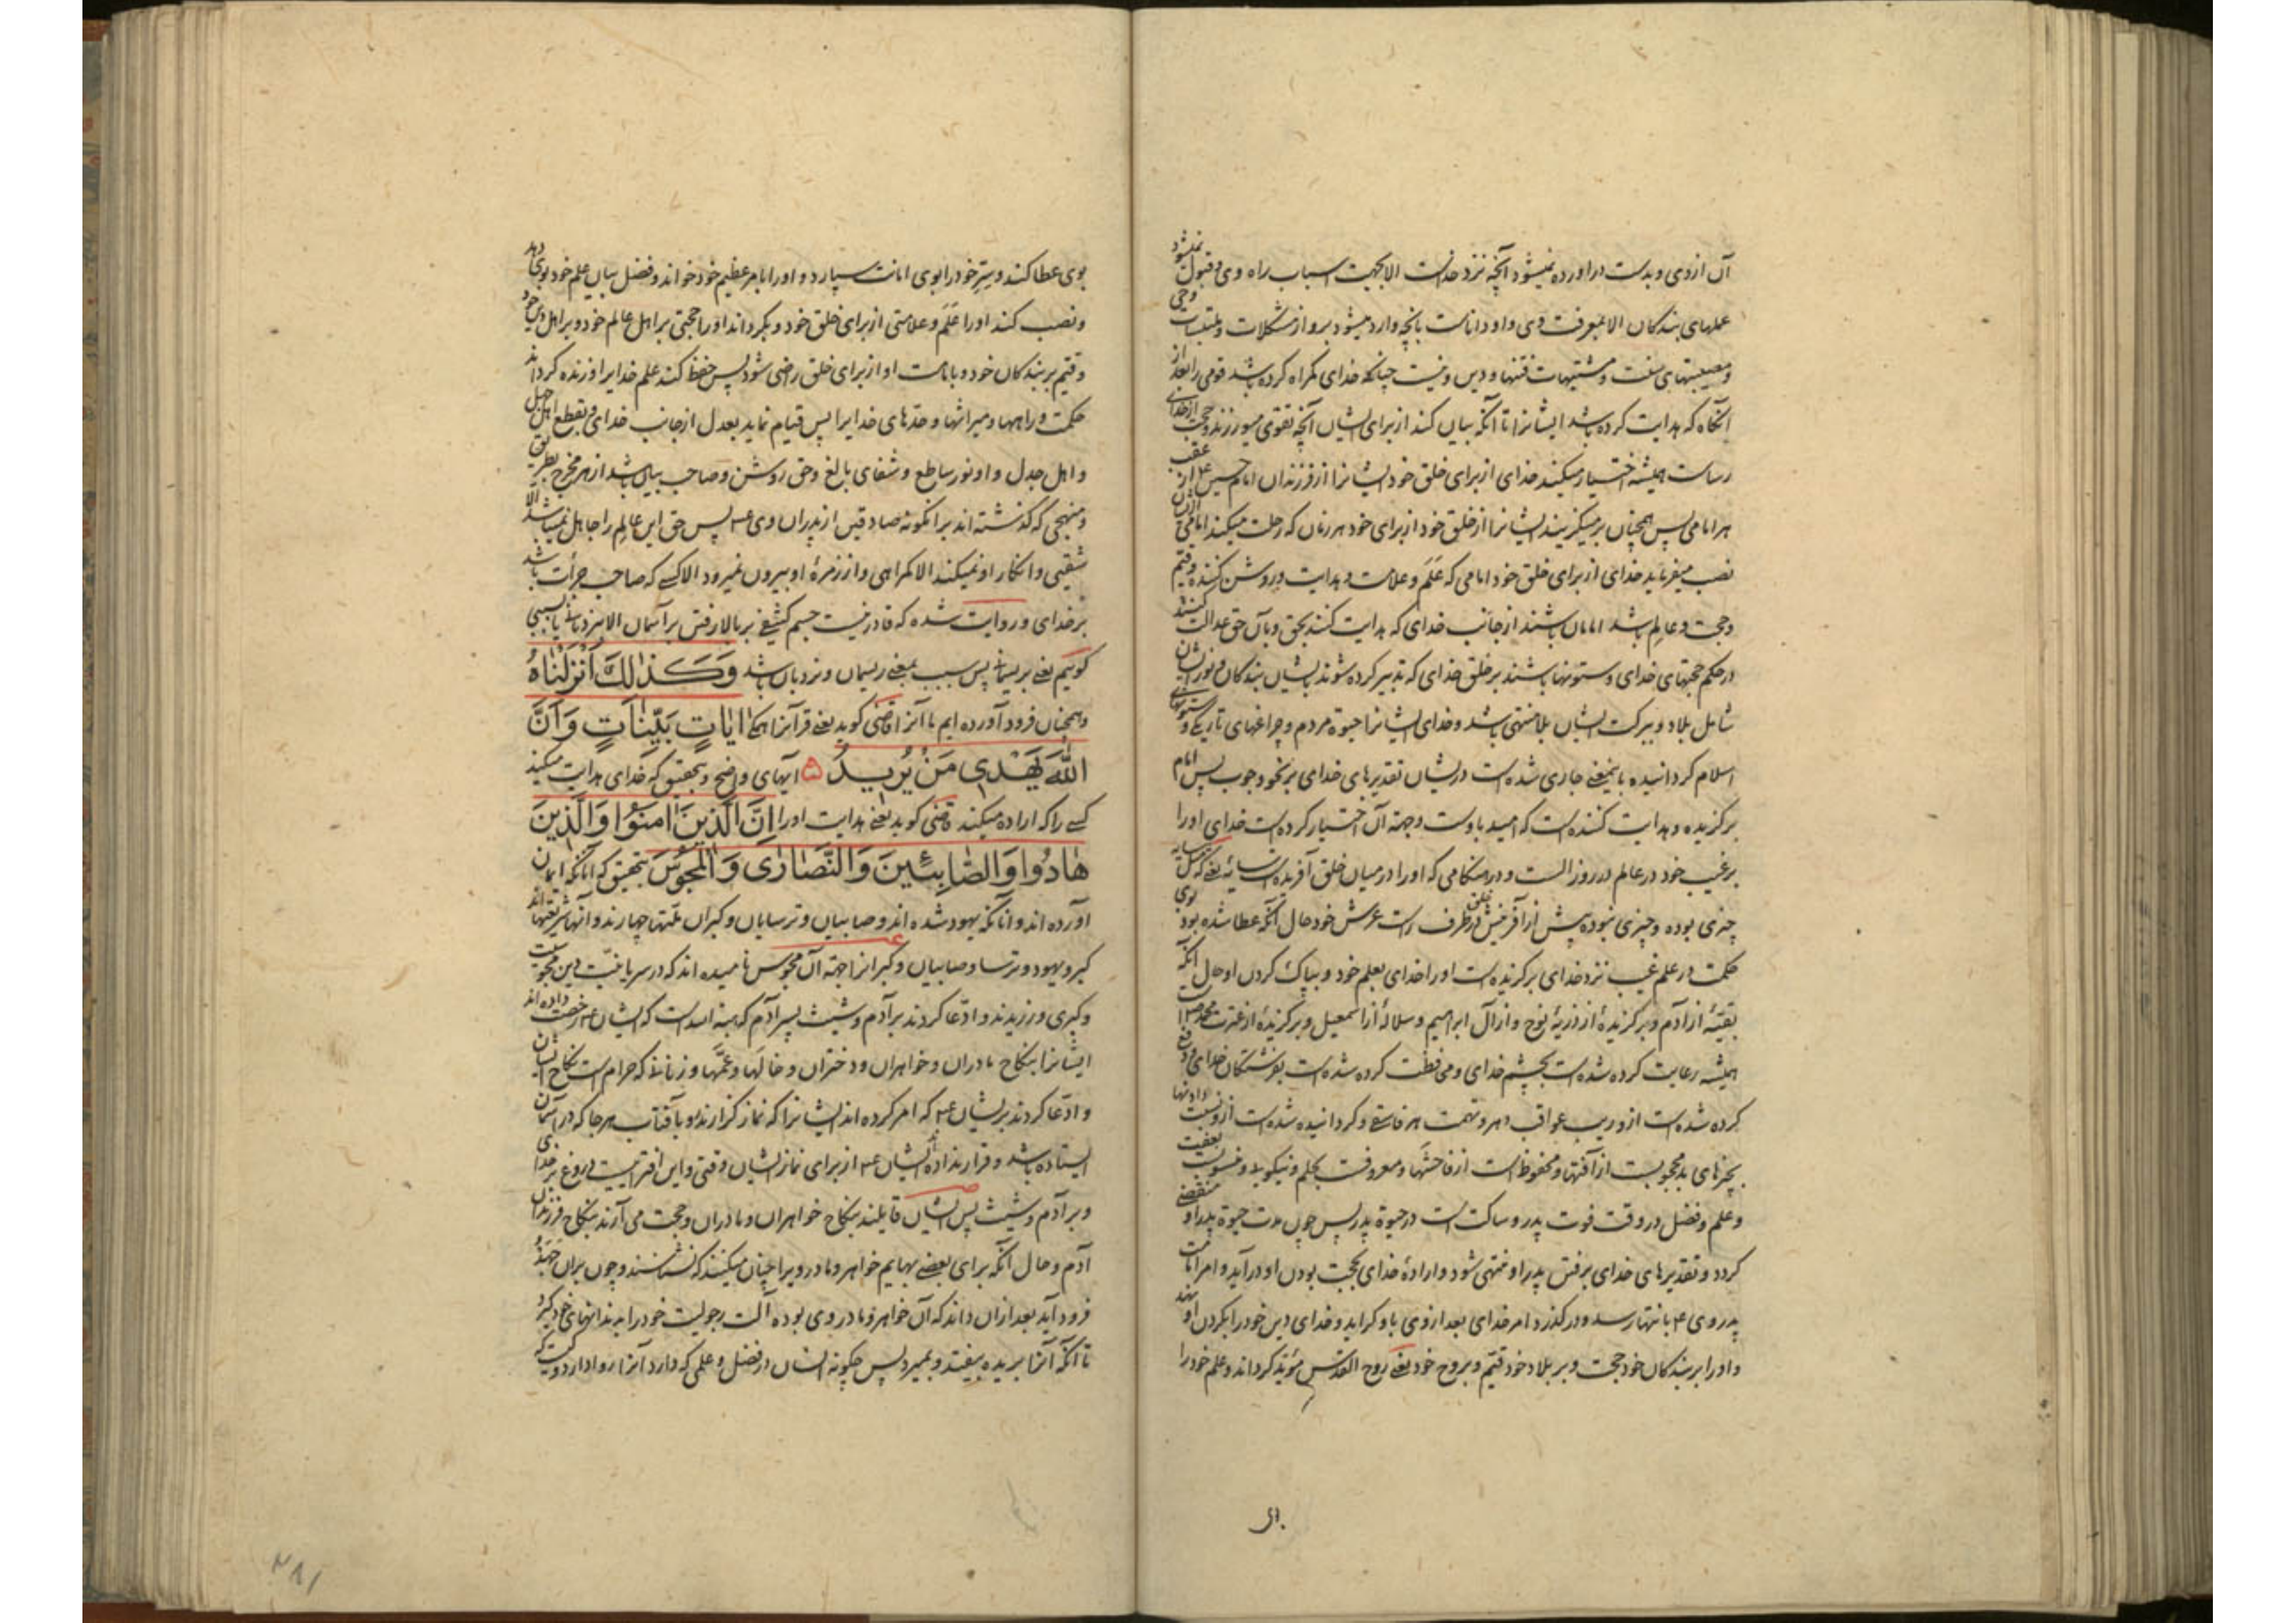 آن ازوی و بدست دراورده نمیشود آنچه نزد خداست الا بجهت اسباب راه وی و قبول نمیشود
عملهای بندکان الا بمعرفت وی و او داناست بانچه وارد میشود برو از مشکلات و ملتبسات وحی
و مصیبتهای سنت و مشتبهات فتنها و دین و نیست چنانکه خدای کمراه کرده باشد قومی را بعد از
آنکاه که هدایت کرده باشد ایشانرا تا آنکه بیان کند از برای ایشان آنچه تقوی میورزند و حجت از خدای
رساست همیشه اختیار میکند خدای از برای خلق خود ایشانرا از فرزندان امام حسین ع از عقب
هر امامی پس همچنان برمیکزیند ایشانرا از خلق خود از برای خود هر زمان که رحلت میکند امامی ازیشان
نصب میفرماید خدای از برای خلق خود امامی که عَلَم و علامت و هدایت و روشن کننده و قیّم
و حجت و عالِم باشد امامان باشند از جانب خدای که هدایت کنند بحق و بآن حق عدالت کنند
در حکم حجتهای خدای و ستونها باشند بر خلق خدای که تدبیر کرده شوند بایشان بندکان و نور ایشان
شامل بلاد و ببرکت ایشان بلا منتهی باشد و خدای ایشانرا حیوة مردم و چراغهای تاریکی و ستونهای
اسلام کردانیده باینمعنی جاری شده است در ایشان تقدیرهای خدای بر نحو وجوب پس امام
برکزیده و هدایت کننده است که امید باوست و جهة آن اختیار کرده است خدای او را
برغیب خود در عالم در روز الست و در هنکامی که او را در میان خلق آفریده است سایۀ یعنی که مثل سایه
چیزی بوده و چیزی نبوده پیش از آفرینش خلق در طرف راست عرش خود حال آنکه عطا شده بود بوی
حکمت در علم غیب نزد خدای برکزیده است او را خدای بعلم خود و بپاک کردن او حال آنکه
بقیّۀ از آدم و برکزیدۀ از ذریۀ نوح و از آل ابراهیم و سلالۀ از اسمعیل و برکزیدۀ از عترت محمد ص است
همیشه رعایت کرده شده است بچشم خدای و محافظت کرده شده است بفرشتکان خدای و دفع
کرده شده است ازو ریب عواقب دهر و تهمت هر فاسقی و کردانیده شده است ازو نسبت دادنها
بچیزهای بد محجوبست از آفتها و محفوظ است از فاحشها و معروفست بحلم و نیکویی و منسوبست بعفت
و علم و فضل در وقت فوت پدر و ساکت است در حیوة پدر پس چون مدت حیوة پدر او منقضی
کردد و تقدیرهای خدای برفتن پدر او منتهی شود و ارادۀ خدای بحجت بودن او درآید و امر امامت
پدر وی ع بانتها رسد و درکذرد امر خدای بعد از وی باو کراید و خدای دین خود را بکردن او نهد
و او را بر بندکان خود حجت و بر بلاد خود قیّم و بروح خود یعنی روح القدس مؤید کرداند و علم خود را
بوی عطا کند و سِرّ خود را بوی امانت سپارد و او را بامر عظیم خود خواند و فضل بیان علم خود بوی دهد
و نصب کند او را عَلَم و علامتی از برای خلق خود و بکرداند او را حجتی بر اهل عالم خود و بر اهل دین خود
و قیّم بر بندکان خود و بامامت او از برای خلق راضی شود پس حفظ کند علم خدایرا و زنده کرداند
حکمت و راهها و میراثها و حدّهای خدایرا پس قیام نماید بعدل از جانب خدای و بقطع اهل جهل
و اهل جدل و او نور ساطع و شفای بالغ و حق روشن و صاحب بیان باشد از هر مخرج بطریق
و منهجی که کذشته اند بر انکونه صادقین از پدران وی ع پس حق این عالِم را جاهل نمیباشد الا
شقیی و انکار او نمیکند الا کمراهی و از زمرۀ او بیرون نمیرود الا کسی که صاحب جرأت باشد
بر خدای و روایت شده که قادر نیست جسم کثیفی بر بالا رفتن بر آسمان الا بنردبانی یا بسببی
کوییم یعنی بریسمانی پس سبب بمعنی ریسمان و نردبان باشد وَكَذٰلِكَ أَنْزَلْنَاهُ
و همچنان فرود آورده ایم ما آنرا قاضی کوید یعنی قرآنرا همکی اٰيَاتٍ بَيِّنَاتٍ وَأَنَّ
اللّٰهَ يَهْدِي مَنْ يُرِيدُ ۵ آیهای واضح و بتحقیق که خدای هدایت میکند
کسی را که اراده میکند قاضی کوید یعنی هدایت او را اِنَّ الَّذِينَ اٰمَنُوا وَالَّذِينَ
هَادُوا وَالصَّابِئِينَ وَالنَّصَارٰى وَالْمَجُوسَ بتحقیق که آنانکه ایمان
آورده اند و آنانکه یهود شده اند و صابیان و ترسایان و کبران ملّتها چهارند و آنها شریعتها اند
کبر و یهود و ترسا و صابیان و کبرانرا جهة آن مجوس نامیده اند که در سریانیّت دین مجوسیت
و کبری ورزیدند و ادّعا کردند بر آدم و شیث پسر آدم که هبة الله است که ایشان ع رخصت داده اند
ایشانرا بنکاح مادران و خواهران و دختران و خالَها و عمَّها و زنانی که حرام است نکاح ایشان
و ادّعا کردند بر ایشان ع که امر کرده اند ایشانرا که نماز کزارند رو بآفتاب هر جا که در آسمان
ایستاده باشد و قرار نداده اند ایشان ع از برای نماز ایشان وقتی و این افتراییست و دروغ بر خدای
و بر آدم و شیث پس ایشان قایلند بنکاح خواهران و مادران و حجت می آرند بنکاح فرزندان
آدم و حال آنکه برای بعضی بهایم خواهر و مادر ویرا چنان میکنند که نشناسند و چون بران جهد
فرود آید بعد از ان داند که آن خواهر و مادر وی بوده آلت رجولیت خود را بدندانهای خود کیرد
تا آنکه آنرا بریده بیفتد و بمیرد پس چکونه انسان در فضل و علمی که دارد آنرا روا دارد
۲۸۱